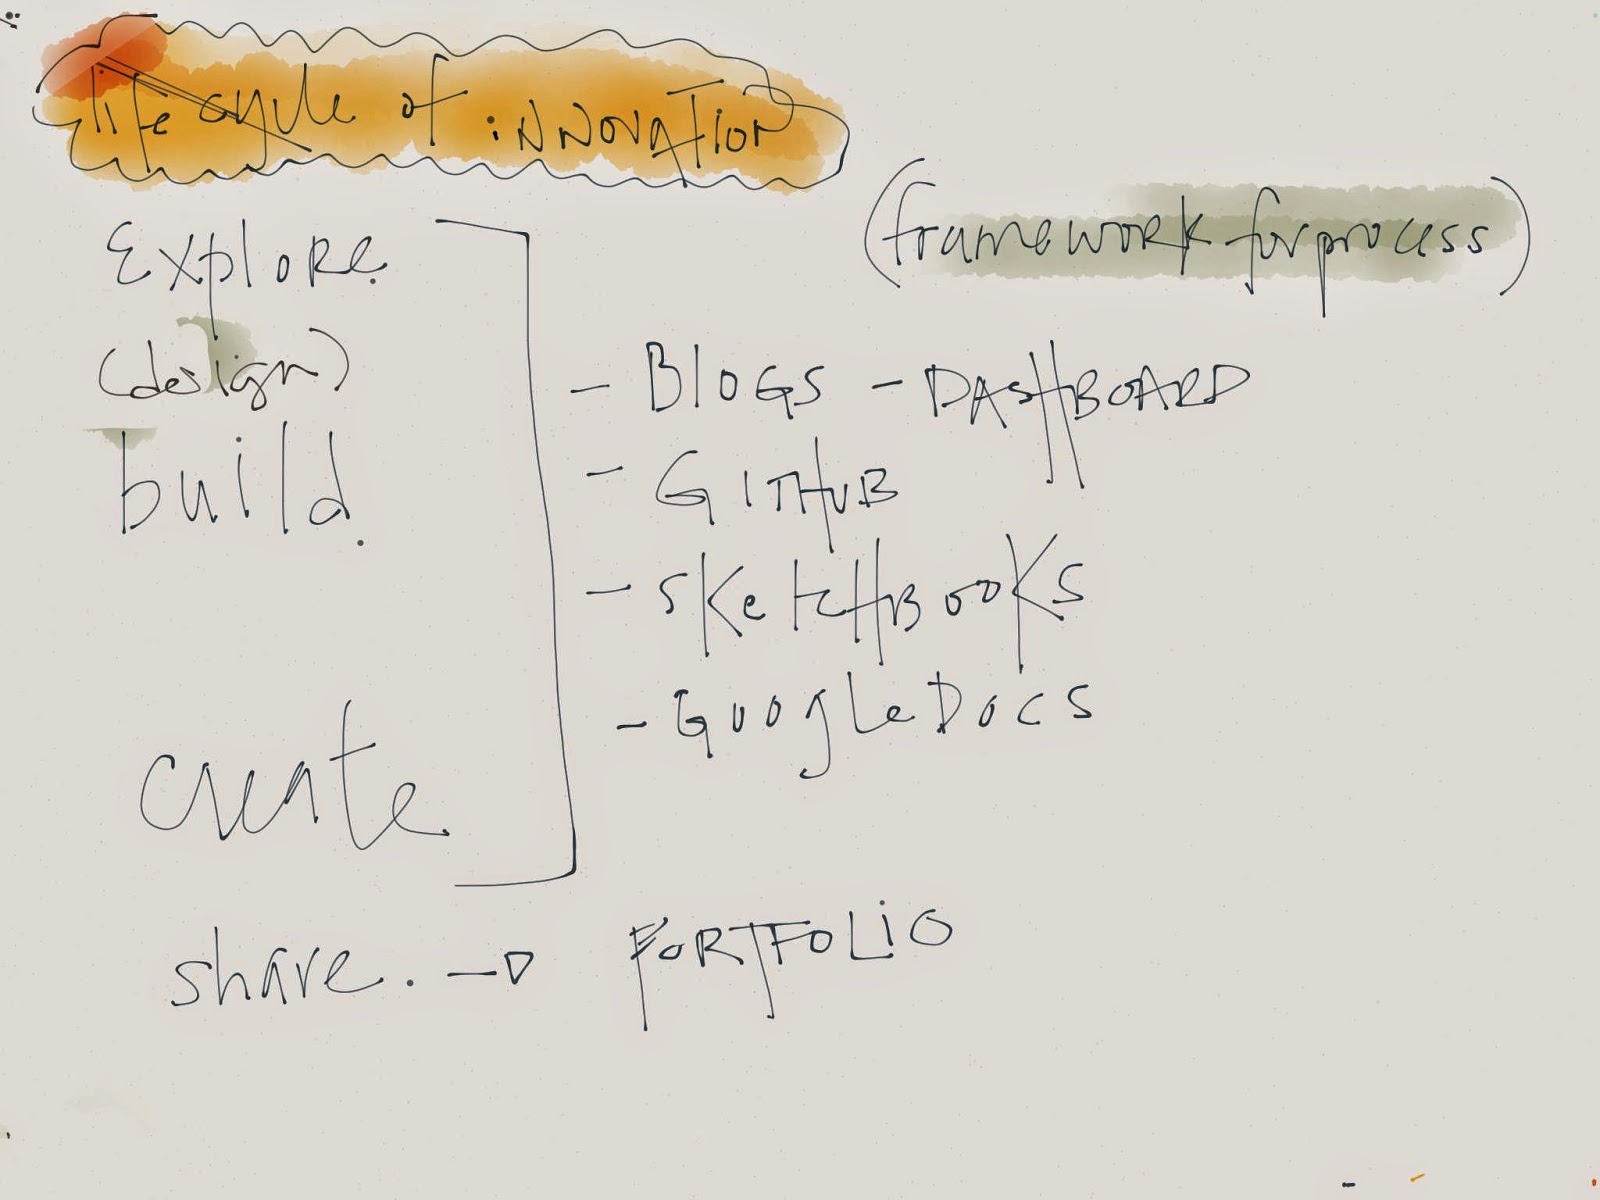 life cycle of iNNovaTion
(framework for process)
Explore.
(design)
build.
create
- BlOGS - DASHBOARD
- GITHUB
- SKetcHBooKS
- GooGLe Docs
share. → PORTFOLiO